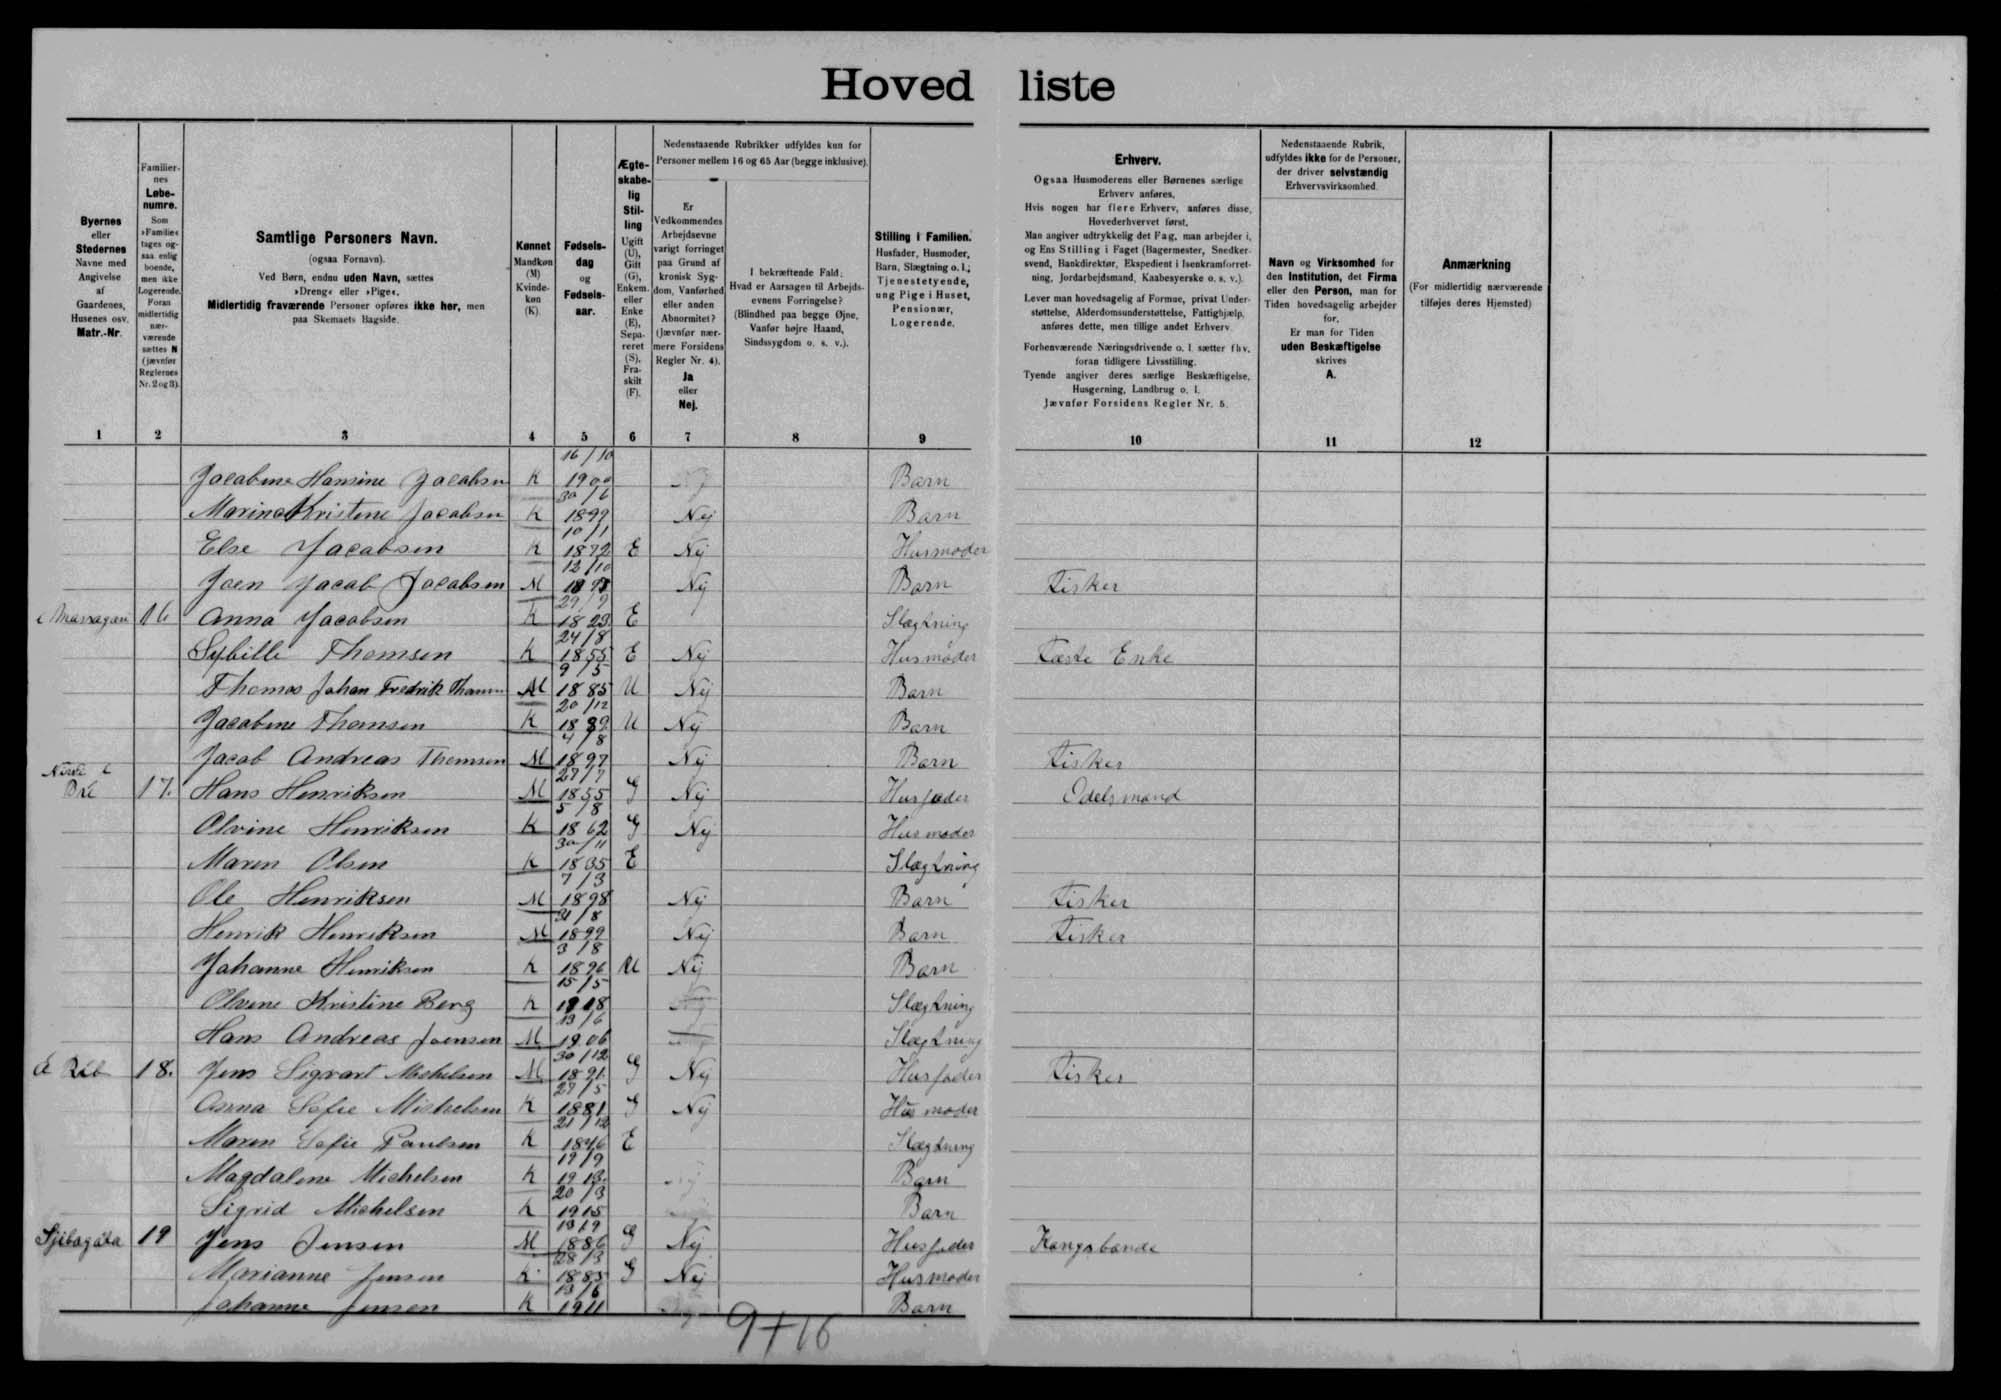 Hoved liste
Byernes eller Stedernes Navne med Angivelse af Gaardenes, Husenes osv. Matr.-Nr.
Familiernes Løbenumre. Som »Familie« tages ogsaa enlig boende, men ikke Logerende. Foran midlertidig nærværende sættes N (jævnfør Reglernes Nr. 2 og 3).
Samtlige Personers Navn. (ogsaa Fornavn). Ved Børn, endnu uden Navn, sættes »Dreng« eller »Pige«. Midlertidig fraværende Personer opføres ikke her, men paa Skemaets Bagside.
Kønnet Mandkøn (M) Kvindekøn (K).
Fødselsdag og Fødselsaar.
Ægteskabelig Stilling Ugift (U), Gift (G), Enkem. eller Enke (E), Separeret (S), Fraskilt (F).
Nedenstaaende Rubrikker udfyldes kun for Personer mellem 16 og 65 Aar (begge inklusive).
Er Vedkommendes Arbejdsevne varigt forringet paa Grund af kronisk Sygdom, Vanførhed eller anden Abnormitet? (Jævnfør nærmere Forsidens Regler Nr. 4). Ja eller Nej.
I bekræftende Fald: Hvad er Aarsagen til Arbejdsevnens Forringelse? (Blindhed paa begge Øjne, Vanfør højre Haand, Sindssygdom o. s. v.).
Stilling i Familien. Husfader, Husmoder, Barn, Slægtning o. l.; Tjenestetyende, ung Pige i Huset, Pensionær, Logerende.
Erhverv. Ogsaa Husmoderens eller Børnenes særlige Erhverv anføres. Hvis nogen har flere Erhverv, anføres disse, Hovederhvervet først. Man angiver udtrykkelig det Fag, man arbejder i, og Ens Stilling i Faget (Bagermester, Snedkersvend, Bankdirektør, Ekspedient i Isenkramforretning, Jordarbejdsmand, Kaabesyerske o. s. v.). Lever man hovedsagelig af Formue, privat Understøttelse, Alderdomsunderstøttelse, Fattighjælp, anføres dette, men tillige andet Erhverv. Forhenværende Næringsdrivende o. l. sætter fhv. foran tidligere Livsstilling. Tyende angiver deres særlige Beskæftigelse, Husgerning, Landbrug o. l. Jævnfør Forsidens Regler Nr. 5.
Nedenstaaende Rubrik, udfyldes ikke for de Personer, der driver selvstændig Erhvervsvirksomhed.
Navn og Virksomhed for den Institution, det Firma eller den Person, man for Tiden hovedsagelig arbejder for. Er man for Tiden uden Beskæftigelse skrives A.
Anmærkning (For midlertidig nærværende tilføjes deres Hjemsted)
1 2 3 4 5 6 7 8 9 10 11 12
Jacobine Hansine Jacobsen K 16/10 1900 Barn
Marina Kristine Jacobsen K 30/6 1899 Nej Barn
Else Jacobsen K 10/1 1872 E Nej Husmoder
Joen Jacob Jacobsen M 12/10 1898 Nej Barn Fisker
16 Anna Jacobsen K 29/9 1823 E Slægtning
Sybille Thomsen K 24/8 1855 E Nej Husmoder Fæste Enke
Thomas Johan Fredrik Thomsen M 9/5 1885 U Nej Barn
Jacobine Thomsen K 20/12 1889 U Nej Barn
Jacob Andreas Thomsen M 4/8 1897 Nej Barn Fisker
17. Hans Henriksen M 27/7 1855 G Nej Husfader Odelsmand
Olvine Henriksen K 5/8 1862 G Nej Husmoder
Maren Olsen K 30/11 1835 E Slægtning
Ole Henriksen M 7/3 1898 Nej Barn Fisker
Henrik Henriksen M 31/8 1899 Nej Barn Fisker
Johanne Henriksen K 3/8 1896 U Nej Barn
Olvine Kristine Berg K 15/5 1908 Slægtning
Hans Andreas Joensen M 13/6 1906 Slægtning
18. Jens Sigvart Michelsen M 30/12 1891 G Nej Husfader Fisker
Anna Sofie Michelsen K 27/5 1881 G Nej Husmoder
Maren Sofie Paulsen K 21/12 1846 E Slægtning
Magdalene Michelsen K 19/9 1913 Barn
Sigrid Michelsen K 20/3 1915 Barn
19 Jens Jensen M 13/9 1886 G Nej Husfader Kongsbonde
Marianne Jensen K 28/3 1885 G Nej Husmoder
Johanne Jensen K 13/6 1911 Barn
9+16